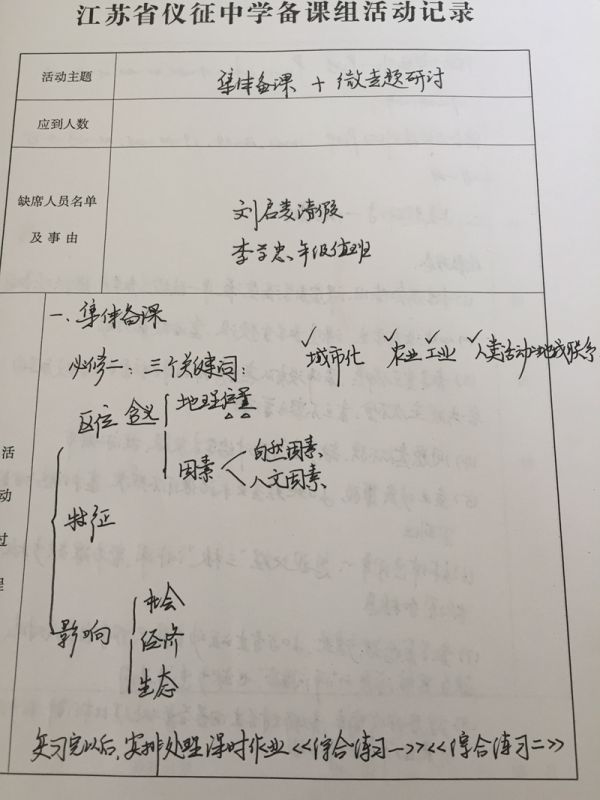 江苏省仪征中学备课组活动记录
活动主题 集体备课 + 微专题研讨
应到人数
缺席人员名单
及事由
刘启 请假
李学忠、年级值班
活动过程
一、集体备课
必修二：三个关键词： ✓城市化 ✓农业 ✓工业 ✓人类活动地域联系
区位 含义 地理位置
因素 自然因素、
人文因素、
特征
影响 社会
经济
生态
复习完以后，安排处理课时作业《综合练习一》《综合练习二》